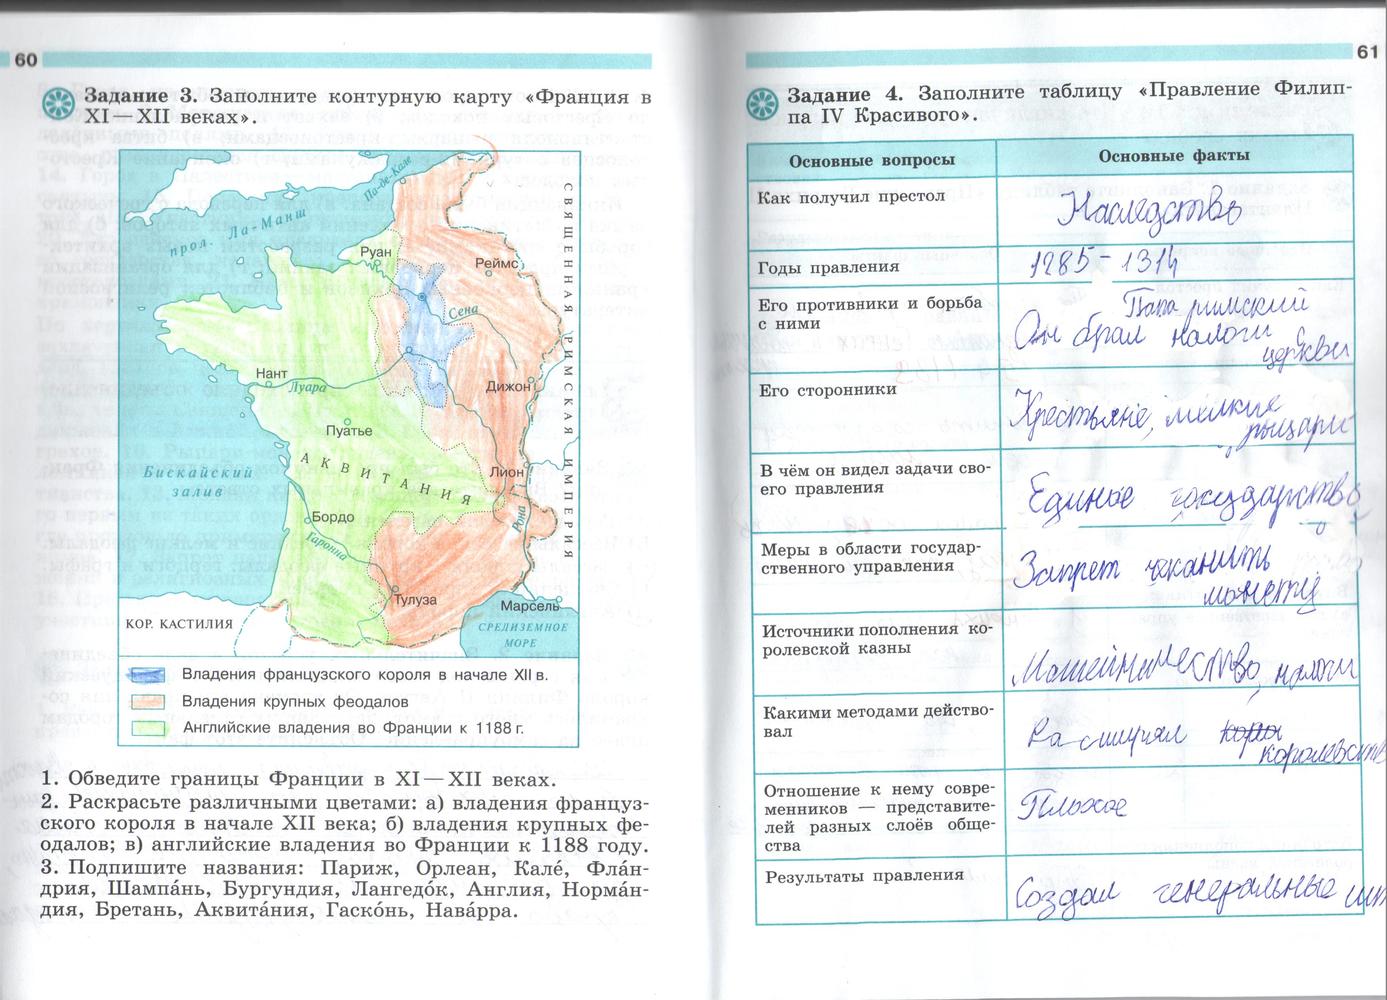 60
Задание 3. Заполните контурную карту «Франция в
XI — XII веках».
Па-де-Кале
прол. Ла-Манш
Руан
Реймс
Сена
СВЯЩЕННАЯ РИМСКАЯ ИМПЕРИЯ
Нант
Луара
Дижон
Пуатье
АКВИТАНИЯ
Бискайский
залив
Лион
Бордо
Рона
Гаронна
Тулуза
Марсель
КОР. КАСТИЛИЯ
СРЕДИЗЕМНОЕ
МОРЕ
Владения французского короля в начале XII в.
Владения крупных феодалов
Английские владения во Франции к 1188 г.
1. Обведите границы Франции в XI — XII веках.
2. Раскрасьте различными цветами: а) владения француз-
ского короля в начале XII века; б) владения крупных фе-
одалов; в) английские владения во Франции к 1188 году.
3. Подпишите названия: Париж, Орлеан, Кале́, Фла́н-
дрия, Шампа́нь, Бургундия, Лангедо́к, Англия, Норма́н-
дия, Бретань, Аквита́ния, Гаско́нь, Нава́рра.
61
Задание 4. Заполните таблицу «Правление Филип-
па IV Красивого».
Основные вопросы
Основные факты
Как получил престол
Наследство
Годы правления
1285 - 1314
Его противники и борьба
с ними
Папа римский
Он брал налоги с
церкви
Его сторонники
Крестьяне, мелкие
рыцари
В чём он видел задачи сво-
его правления
Единое государство
Меры в области государ-
ственного управления
Запрет чеканить
монету
Источники пополнения ко-
ролевской казны
Мошенничество, налоги
Какими методами действо-
вал
Расширял
королевств
Отношение к нему совре-
менников — представите-
лей разных слоёв обще-
ства
Плохое
Результаты правления
Создал генеральные шт